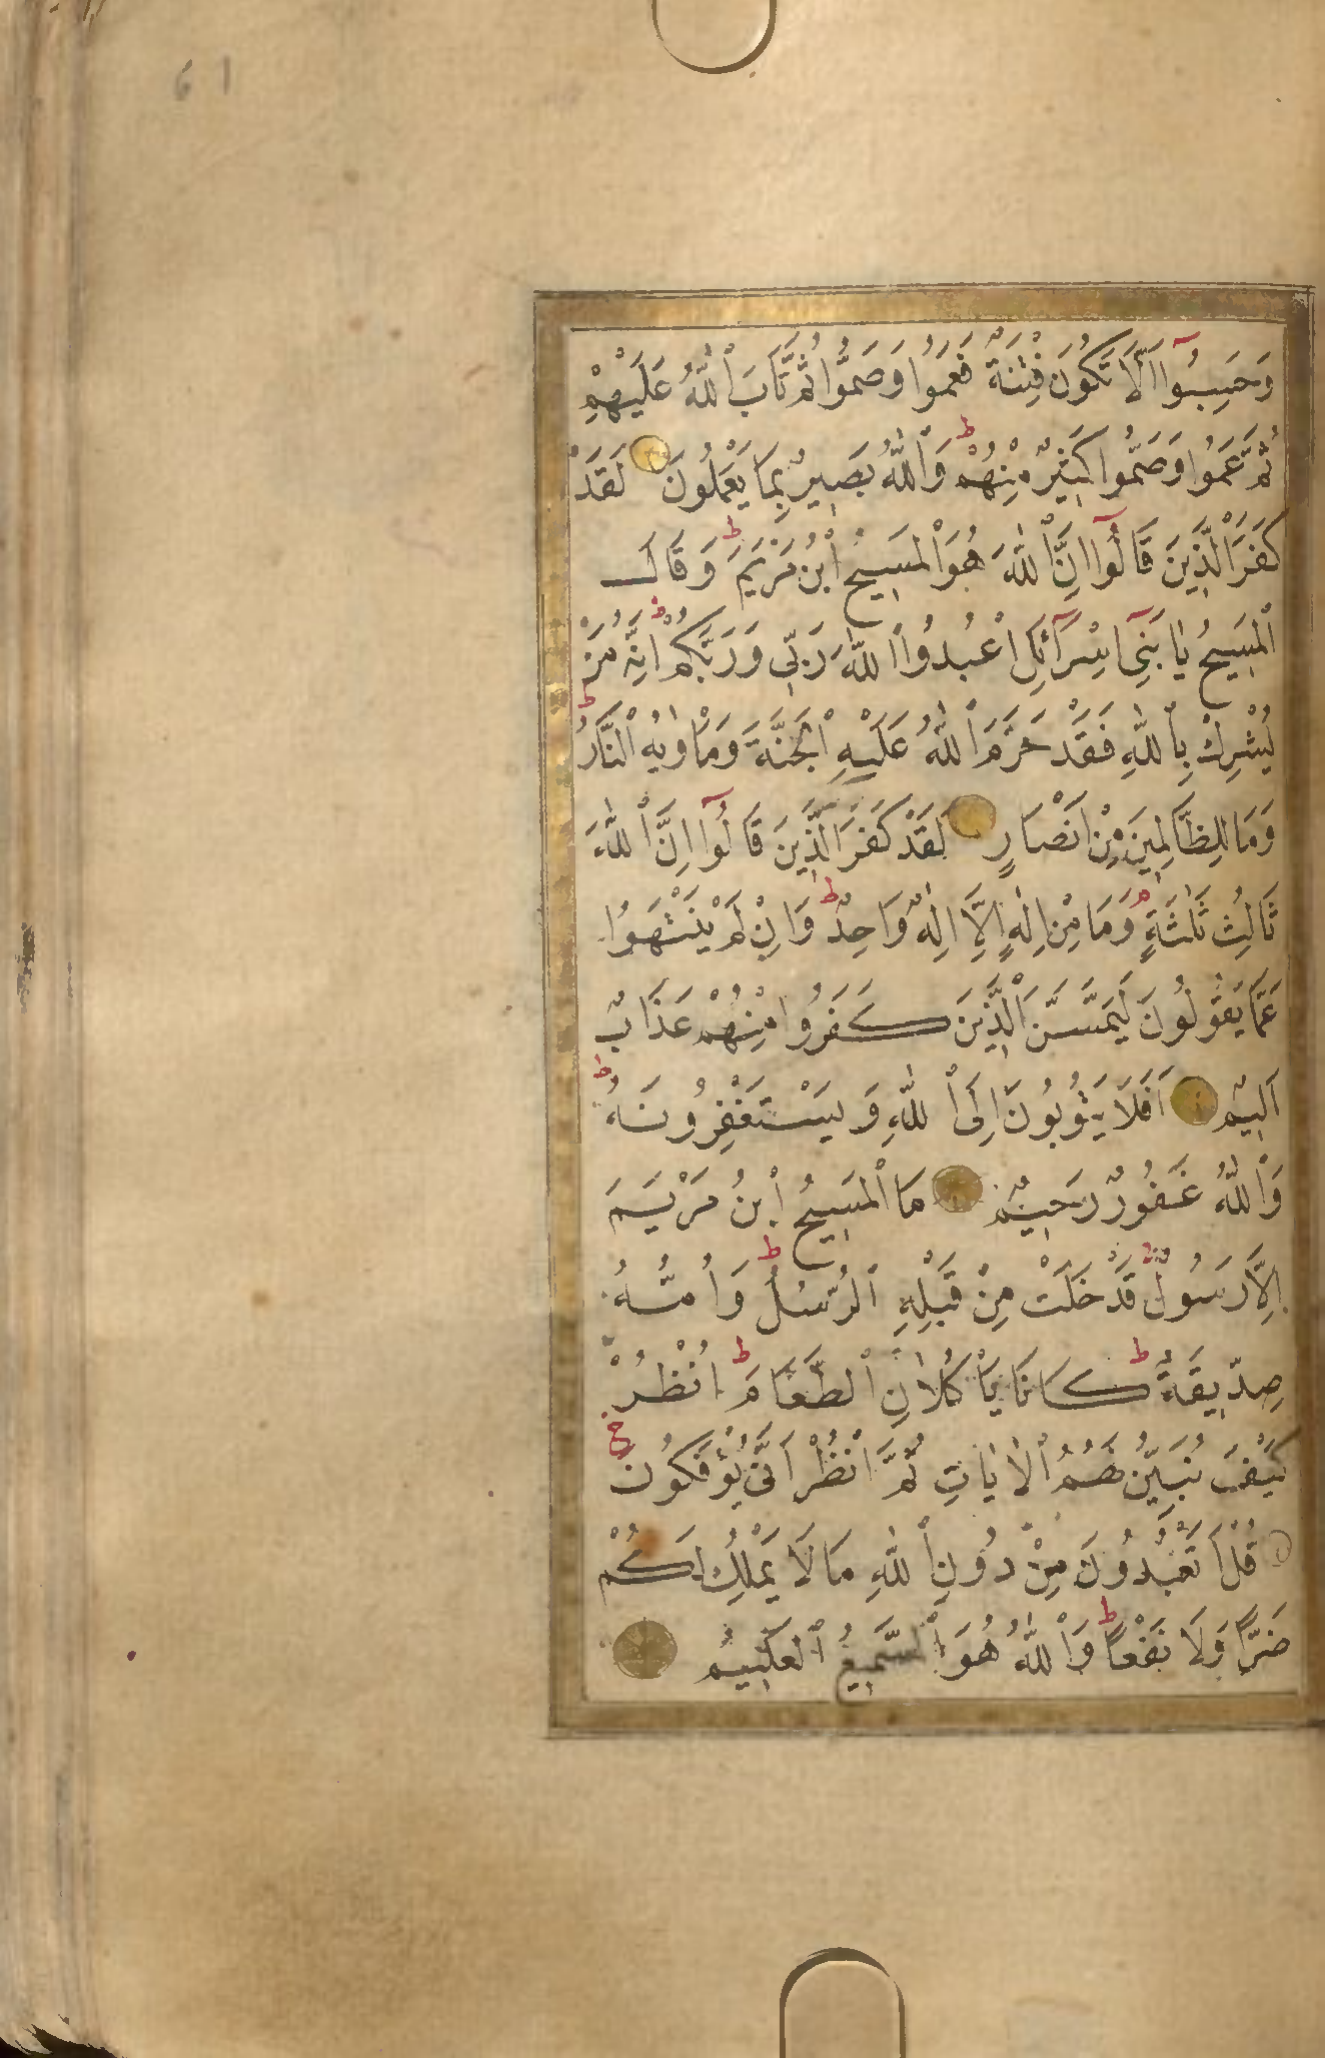 61
وَحَسِبُوٓا اَلَّا تَكُونَ فِتْنَةٌ فَعَمُوا وَصَمُّوا ثُمَّ تَابَ ٱللّٰهُ عَلَيْهِمْ
ثُمَّ عَمُوا وَصَمُّوا كَثِيرٌ مِنْهُمْ ط وَٱللّٰهُ بَصِيرٌ بِمَا يَعْمَلُونَ لَقَدْ
كَفَرَ ٱلَّذِينَ قَالُوٓا اِنَّ ٱللّٰهَ هُوَ ٱلْمَسِيحُ ٱبْنُ مَرْيَمَ ط وَقَالَ
ٱلْمَسِيحُ يَا بَنِٓى اِسْرَآئِلَ اعْبُدُوا ٱللّٰهَ رَبِّى وَرَبَّكُمْ اِنَّهُ مَنْ
يُشْرِكْ بِٱللّٰهِ فَقَدْ حَرَّمَ ٱللّٰهُ عَلَيْهِ ٱلْجَنَّةَ وَمَأْوٰيهُ ٱلنَّارُ ط
وَمَا لِلظَّالِمِينَ مِنْ اَنْصَارٍ لَقَدْ كَفَرَ ٱلَّذِينَ قَالُوٓا اِنَّ ٱللّٰهَ
ثَالِثُ ثَلٰثَةٍ م وَمَا مِنْ اِلٰهٍ اِلَّا اِلٰهٌ وَاحِدٌ ط وَاِنْ لَمْ يَنْتَهُوا
عَمَّا يَقُولُونَ لَيَمَسَّنَّ ٱلَّذِينَ كَفَرُوا مِنْهُمْ عَذَابٌ
اَلِيمٌ اَفَلَا يَتُوبُونَ اِلَى ٱللّٰهِ وَيَسْتَغْفِرُونَهُ ط
وَٱللّٰهُ غَفُورٌ رَحِيمٌ مَا ٱلْمَسِيحُ ٱبْنُ مَرْيَمَ
اِلَّا رَسُولٌ قَدْ خَلَتْ مِنْ قَبْلِهِ ٱلرُّسُلُ ط وَاُمُّهُ
صِدِّيقَةٌ ط كَانَا يَأْكُلَانِ ٱلطَّعَامَ ط اُنْظُرْ
كَيْفَ نُبَيِّنُ لَهُمُ ٱلْاٰيَاتِ ثُمَّ ٱنْظُرْ اَنّٰى يُؤْفَكُونَ
قُلْ اَتَعْبُدُونَ مِنْ دُونِ ٱللّٰهِ مَا لَا يَمْلِكُ لَكُمْ
ضَرًّا وَلَا نَفْعًا ط وَٱللّٰهُ هُوَ ٱلسَّمِيعُ ٱلْعَلِيمُ